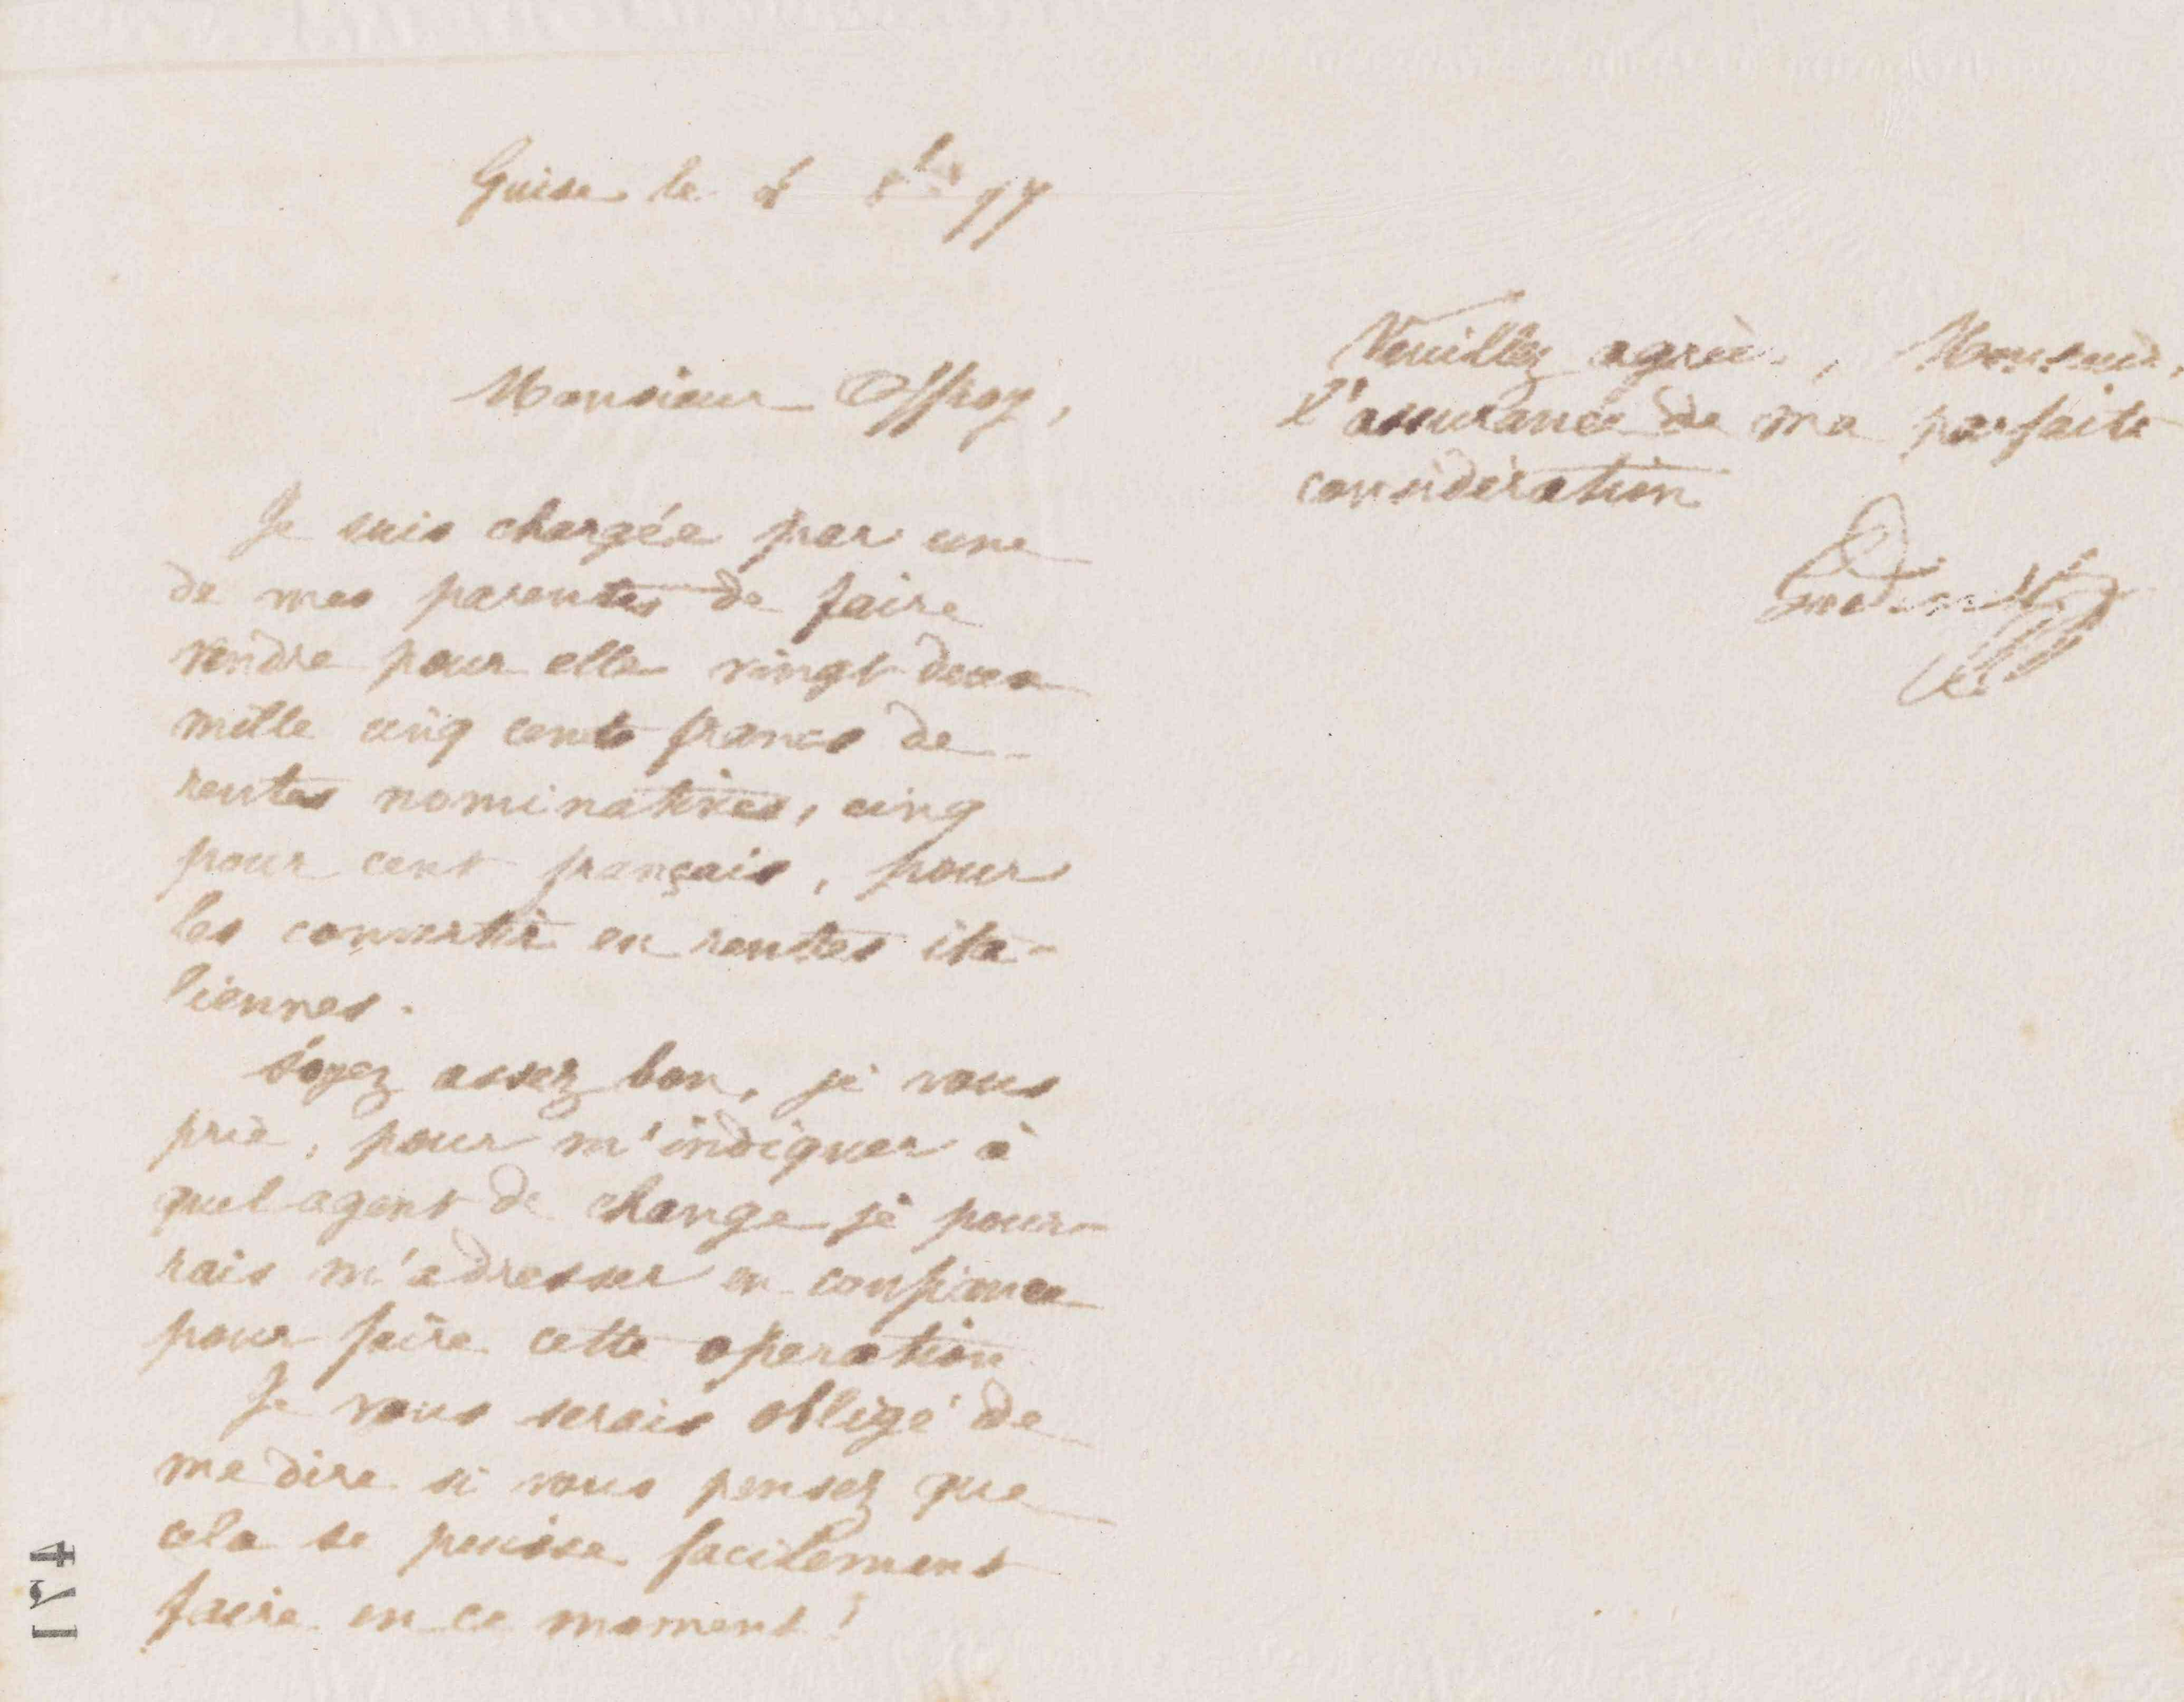 Guise le 77
Monsieur Offroy,
Je suis chargée par une
de mes parentes de faire
vendre pour elle vingt deux
mille cinq cents francs de
rentes nominatives, cinq
pour cent français, pour
les convertir en rentes ita-
liennes.
Soyez assez bon, je vous
prie, pour m'indiquer à
quel agent de change je pour-
rais m'adresser en confiance
pour faire cette operation
Je vous serais obligé de
me dire si vous pensez que
cela se puisse facilement
faire en ce moment?
Veuillez agréer, Monsieur,
l'assurance de ma parfaite
considération
Godin
174